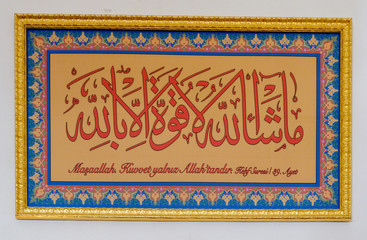 ما شاء الله لا قوة الا بالله
Maşaallah, Kuvvet yalnız Allah'tandır. Kehf Suresi / 39. Ayet